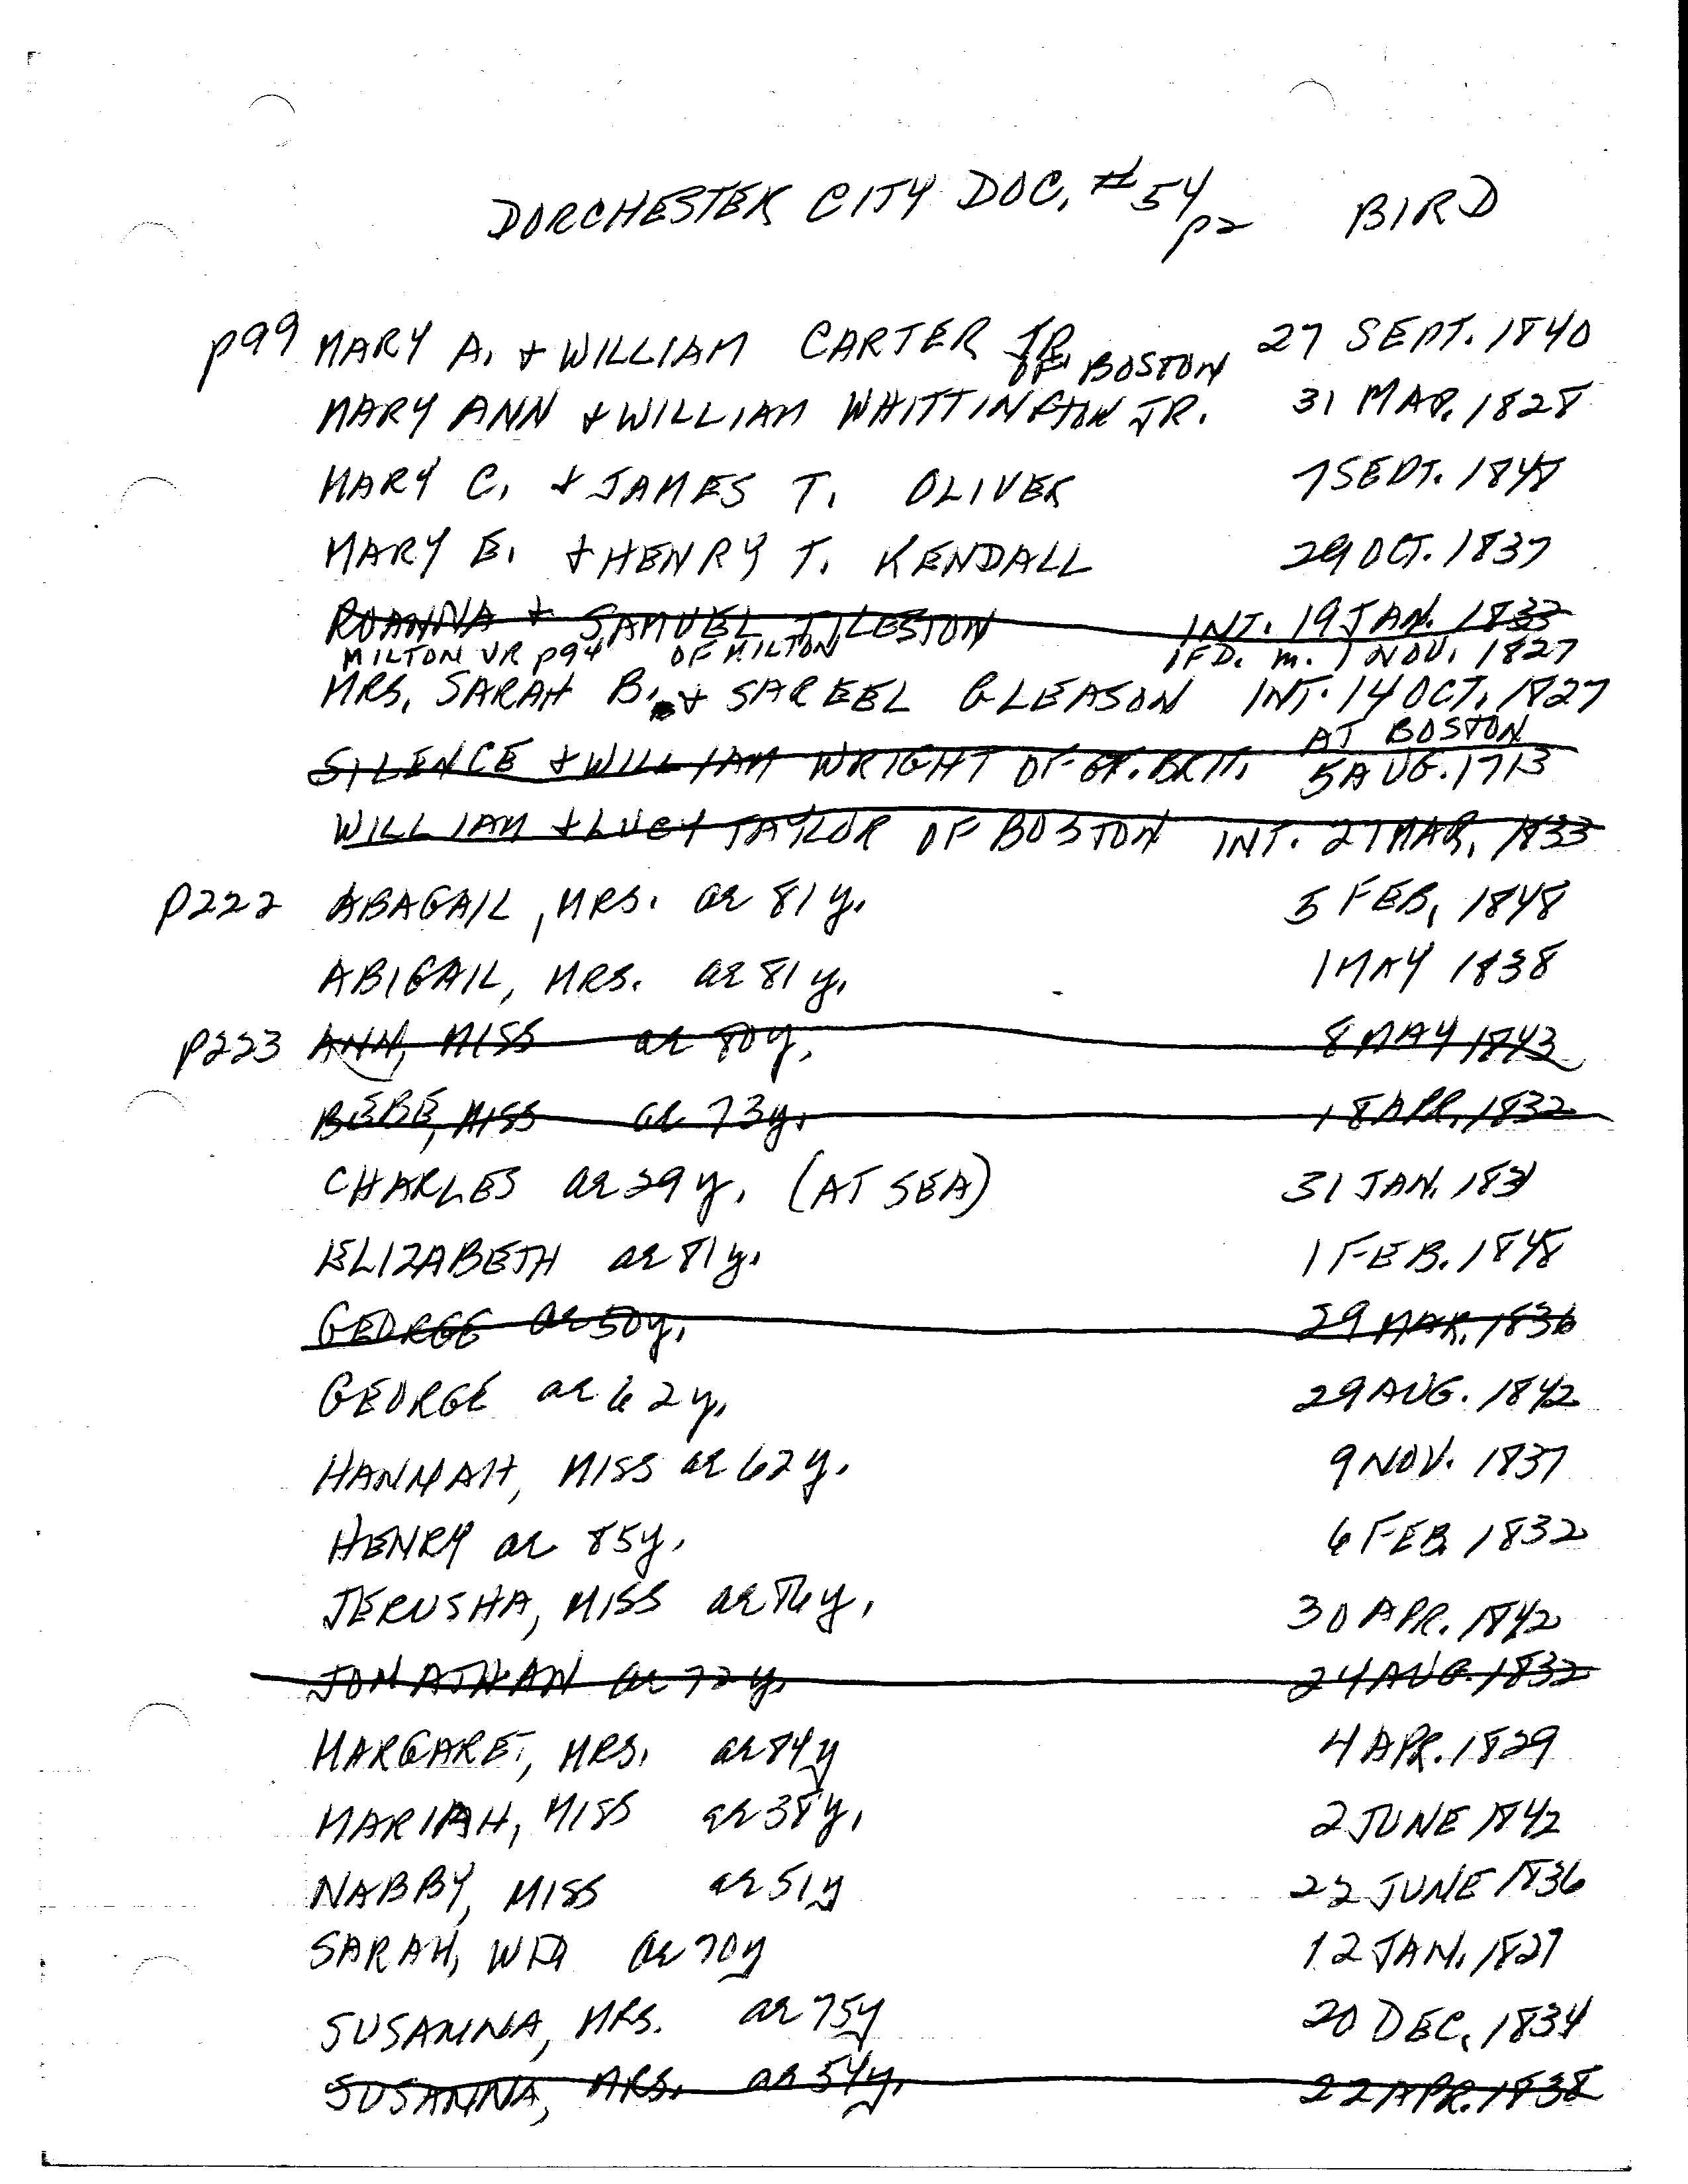 DORCHESTER CITY DOC. #54 p2 BIRD
p99 MARY A. + WILLIAM CARTER JR. OF BOSTON 27 SEPT. 1840
MARY ANN + WILLIAM WHITTINGTON JR. 31 MAR. 1828
MARY C. + JAMES T. OLIVER 7 SEPT. 1848
MARY E. + HENRY T. KENDALL 29 OCT. 1837
ROANNA + SAMUEL TILESTON INT. 19 JAN. 1833
MILTON VR p94 OF MILTON IFD. m. 1 NOV. 1827
MRS. SARAH B. + SAREEL GLEASON INT. 14 OCT. 1827
AT BOSTON
SILENCE + WILLIAM WRIGHT OF GT. BRIT. 5 AUG. 1713
WILLIAM + LUCY TAYLOR OF BOSTON INT. 27 MAR. 1833
p222 ABAGAIL, MRS. ae 81 y. 5 FEB. 1848
ABIGAIL, MRS. ae 81 y. 1 MAY 1838
p223 ANN, MISS ae 80 y. 8 MAY 1843
BEBE, MISS ae 73 y. 18 APR. 1832
CHARLES ae 29 y. (AT SEA) 31 JAN. 1831
ELIZABETH ae 81 y. 1 FEB. 1848
GEORGE ae 50 y. 29 MAR. 1836
GEORGE ae 62 y. 29 AUG. 1842
HANNAH, MISS ae 62 y. 9 NOV. 1837
HENRY ae 85 y. 6 FEB. 1832
JERUSHA, MISS ae 76 y. 30 APR. 1842
JONATHAN ae 72 y. 24 AUG. 1832
MARGARET, MRS. ae 84 y 4 APR. 1829
MARIAH, MISS ae 38 y. 2 JUNE 1842
NABBY, MISS ae 51 y 22 JUNE 1836
SARAH, WID ae 70 y 12 JAN. 1827
SUSANNA, MRS. ae 75 y 20 DEC. 1834
SUSANNA, MRS. ae 54 y. 22 APR. 1838